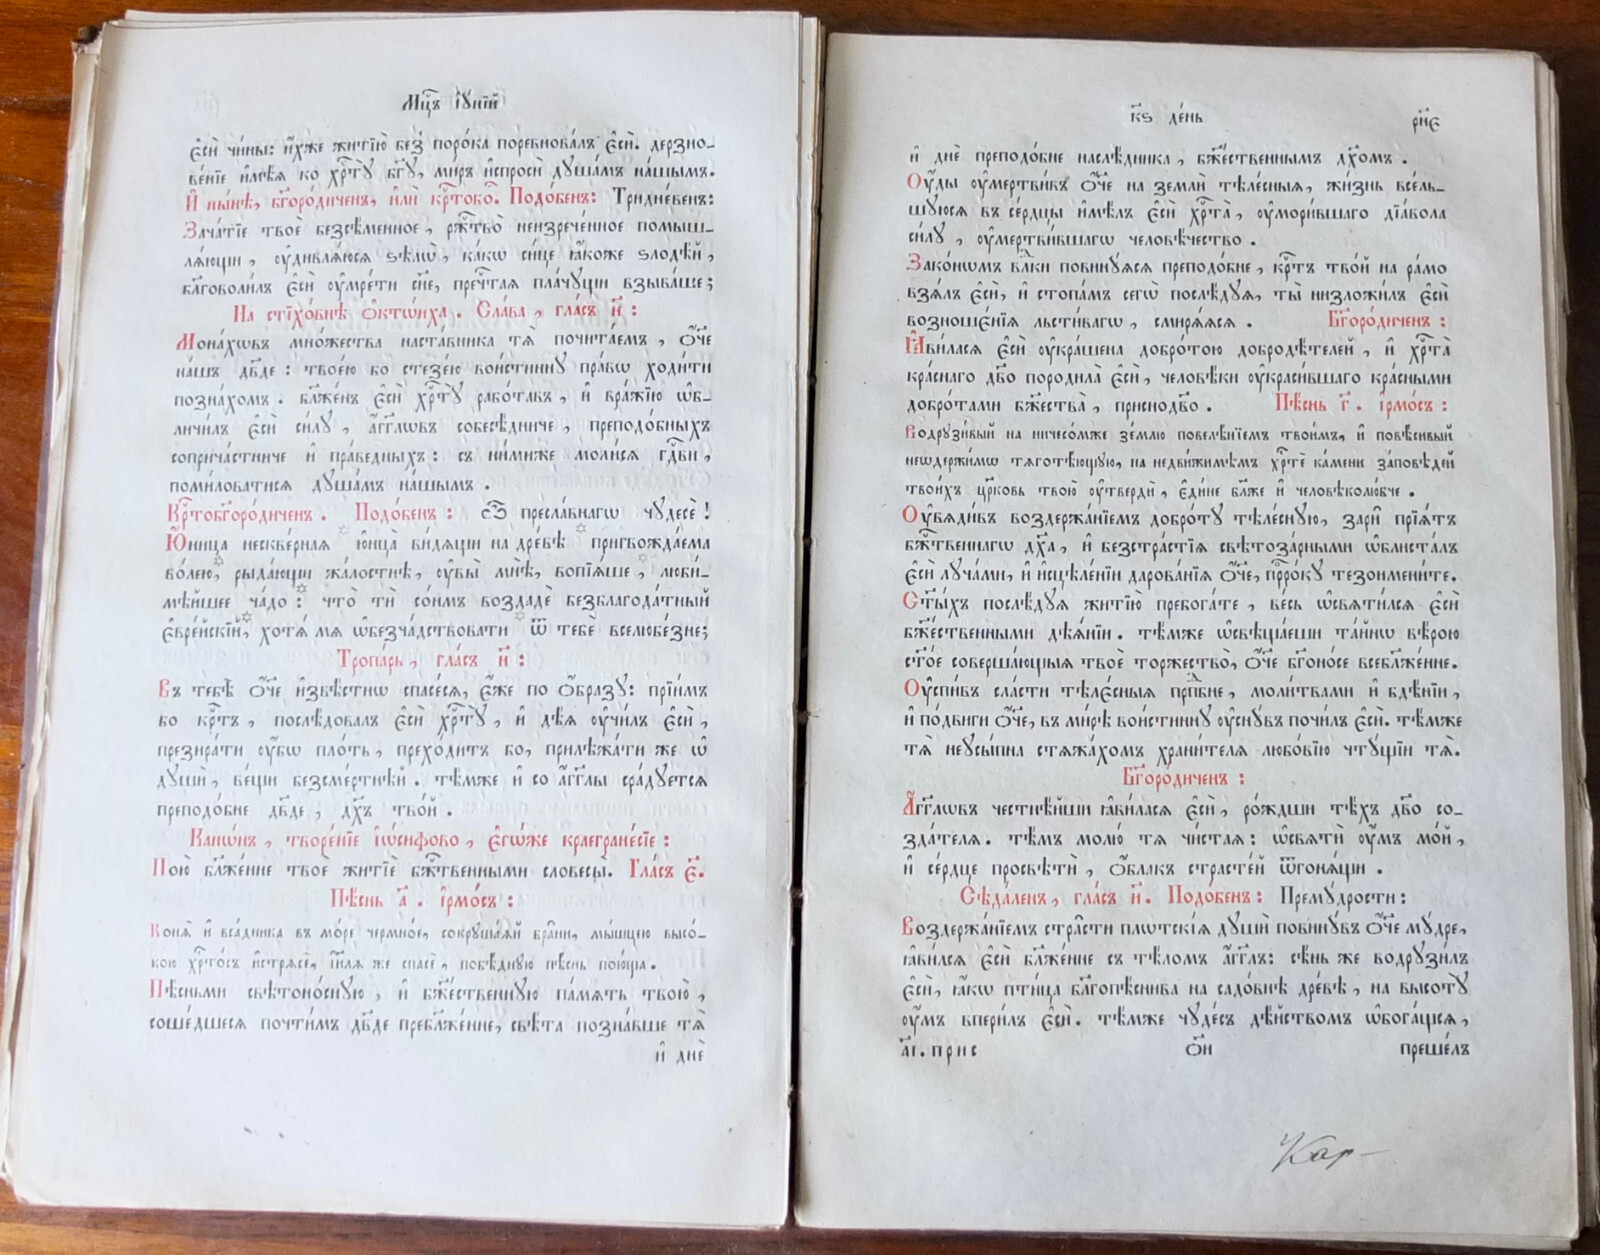 Мц҃ъ І҆ꙋ́нїй
є҆сѝ чи́ны: и҆́хже житїю̀ без̾ поро́ка поревнова́лъ є҆сѝ. дерзно-
ве́нїе и҆мѣ́ѧ ко хрⷭ҇тꙋ̀ бг҃ꙋ, ми́ръ и҆спросѝ дꙋша́мъ на́шымъ.
И҆ ны́нѣ, бг҃оро́диченъ, и҆лѝ крⷭ҇токо. Подо́бенъ: Тридне́венъ:
Зача́тїе твоѐ безсѣ́менное, ржⷭ҇тво̀ неизрече́нное помыш-
лѧ́ющи, ᲂу҆дивлѧ́юсѧ ѕѣлѡ̀, ка́кѡ си́це ꙗ҆́коже ѕлодѣ́й,
бл҃говоли́лъ є҆сѝ ᲂу҆мре́ти сн҃е, пречⷭ҇таѧ пла́чꙋщи взыва́ше;
На стїхо́внѣ ѻ҆ктѡ́иха. Сла́ва, гла́съ и҃:
Мона́хѡвъ мно́жества наста́вника тѧ̀ почита́емъ, ѻ҆́ч҃е
на́шъ дв҃де: твое́ю бо стезе́ю вои́стиннꙋ пра́вѡ ходи́ти
позна́хомъ. бл҃же́нъ є҆сѝ хрⷭ҇тꙋ̀ рабо́тавъ, и҆ вра́жїю ѡ҆б-
личи́лъ є҆сѝ си́лꙋ, а҆́гг҃лѡвъ собесѣ́дниче, преподо́бныхъ
соприча́стниче и҆ пра́ведныхъ: съ ни́миже моли́сѧ гдⷭ҇ви,
поми́ловатисѧ дꙋша́мъ на́шымъ.
Крⷭ҇тобг҃оро́диченъ. Подо́бенъ: Ѽ пресла́внагѡ чꙋдесѐ!
Ю҆́ница нескве́рнаѧ * ю҆нца̀ ви́дѧщи на дре́вѣ * пригвожда́ема
во́лею,* рыда́ющи жа́лостнѣ, ᲂу҆вы̀ мнѣ̀, вопїѧ́ше,* люби-
мѣ́йшее ча́до:* что̀ ти̑ со́нмъ воздадѐ безблагода́тный
є҆вре́йскїй,* хотѧ́ мѧ ѡ҆безча́дствовати * ѿ тебѐ вселюбе́зне;
Тропа́рь, гла́съ и҃:
Въ тебѣ̀ ѻ҆́ч҃е и҆звѣ́стнѡ спасе́сѧ, є҆́же по ѻ҆́бразꙋ: прїи́мъ
бо крⷭ҇тъ, послѣ́довалъ є҆сѝ хрⷭ҇тꙋ̀, и҆ дѣ́ѧ ᲂу҆чи́лъ є҆сѝ,
презира́ти ᲂу҆́бѡ пло́ть, прехо́дитъ бо, прилѣжа́ти же ѡ҆
дꙋшѝ, ве́щи безсме́ртнѣй. тѣ́мже и҆ со а҆́гг҃лы сра́дꙋетсѧ
преподо́бне дв҃де, дх҃ъ тво́й.
Канѡ́нъ, творе́нїе і҆ѡ́сифово, є҆гѡ́же краегране́сїе:
Пою̀ бл҃же́нне твоѐ житїѐ бжⷭ҇твенными словесы̀. Гла́съ є҃.
Пѣ́снь а҃. і҆рмо́съ:
Конѧ̀ и҆ вса́дника въ мо́ре чермно́е, сокрꙋша́ѧй бра̑ни, мы́шцею высо́-
кою хрⷭ҇то́съ и҆стрѧсѐ, і҆и҃лѧ же спасѐ, побѣ́днꙋю пѣ́снь пою́ща.
Пѣ́сньми свѣтоно́снꙋю, и҆ бжⷭ҇твеннꙋю па́мѧть твою̀,
соше́дшесѧ почти́мъ дв҃де пребл҃же́нне, свѣ́та позна́вше тѧ̀
и҆ днѐ
к҃ѕ де́нь
рн҃є
и҆ днѐ преподо́бне наслѣ́дника, бжⷭ҇твеннымъ дх҃омъ.
Оу҆́ды ᲂу҆мертви́въ ѻ҆́ч҃е на землѝ тѣлє́сныѧ, жи́знь всель-
шꙋюсѧ въ се́рдцы и҆мѣ́лъ є҆сѝ хрⷭ҇та̀, ᲂу҆мори́вшаго дїа́вола
си́лꙋ, ᲂу҆мертви́вшагѡ человѣ́чество.
Зако́нѡмъ влⷣки повинꙋ́ѧсѧ преподо́бне, крⷭ҇тъ тво́й на ра́мо
взѧ́лъ є҆сѝ, и҆ стопа́мъ сегѡ̀ послѣ́дꙋѧ, ты̀ низложи́лъ є҆сѝ
возноше́нїѧ льсти́вагѡ, смирѧ́ѧсѧ. Бг҃оро́диченъ:
Ꙗ҆ви́ласѧ є҆сѝ ᲂу҆кра́шена добро́тою добродѣ́телей, и҆ хрⷭ҇та̀
кра́снаго дв҃о породила̀ є҆сѝ, человѣ́ки ᲂу҆краси́вшаго кра́сными
добро́тами бжⷭ҇тва̀, приснодв҃о. Пѣ́снь г҃. і҆рмо́съ:
Водрꙋзи́вый на ничесо́мже зе́млю повелѣ́нїемъ твои́мъ, и҆ повѣ́сивый
неѡдержи́мѡ тѧготѣ́ющꙋю, на недви́жимѣмъ хрⷭ҇тѐ ка́мени за́повѣдей
твои́хъ цр҃ковь твою̀ ᲂу҆твердѝ, є҆ди́не бл҃же и҆ человѣколю́бче.
Оу҆вѧди́въ воздержа́нїемъ добро́тꙋ тѣле́снꙋю, зарѝ прїѧ́тъ
бжⷭ҇твеннагѡ дх҃а, и҆ безстра́стїѧ свѣтоза́рными ѡ҆блиста́лъ
є҆сѝ лꙋча́ми, и҆ и҆сцѣле́нїи дарова̑нїѧ ѻ҆́ч҃е, прⷪ҇ро́кꙋ тезоимени́те.
Ст҃ы́хъ послѣ́дꙋѧ житїю̀ пребога́те, ве́сь ѡ҆свѧти́лсѧ є҆сѝ
бжⷭ҇твенными дѣѧ́нїи. тѣ́мже ѡ҆свѣща́еши та́йнѡ вѣ́рою
ст҃о́е соверша́ющыѧ твоѐ торжество̀, ѻ҆́ч҃е бг҃оно́се всебл҃же́нне.
Оу҆спи́въ сла́сти тѣлє́сныѧ прпⷣбне, моли́твами и҆ бдѣ́нїи,
и҆ по́двиги ѻ҆́ч҃е, въ ми́рѣ вои́стиннꙋ ᲂу҆снꙋ́въ почи́лъ є҆сѝ. тѣ́мже
тѧ̀ неꙋсы́пна стѧжа́хомъ храни́телѧ любо́вїю чтꙋ́щїи тѧ̀.
Бг҃оро́диченъ:
А҆́гг҃лѡвъ честнѣ́йши ꙗ҆ви́ласѧ є҆сѝ, ро́ждши тѣ́хъ дв҃о со-
зда́телѧ. тѣ́мъ молю́ тѧ чи́стаѧ: ѡ҆свѧтѝ ᲂу҆́мъ мо́й,
и҆ се́рдце просвѣтѝ, ѻ҆́блакъ страсте́й ѿгонѧ́щи.
Сѣда́ленъ, гла́съ и҃. Подо́бенъ: Премꙋ́дрости:
Воздержа́нїемъ стра̑сти плѡтскі́ѧ дꙋшѝ повинꙋ́въ ѻ҆́ч҃е мꙋ́дре,
ꙗ҆ви́лсѧ є҆сѝ бл҃же́нне съ тѣ́ломъ а҆́гг҃лъ: сѣ́нь же водрꙋзи́лъ
є҆сѝ, ꙗ҆́кѡ пти́ца бл҃гопѣсни́ва на садо́внѣ дре́вѣ, на высотꙋ̀
ᲂу҆́мъ впери́лъ є҆сѝ. тѣ́мже чꙋде́съ дѣ́йствомъ ѡ҆богащсѧ,
а҃і. прис ѻ҆н прешéлъ
Кар-